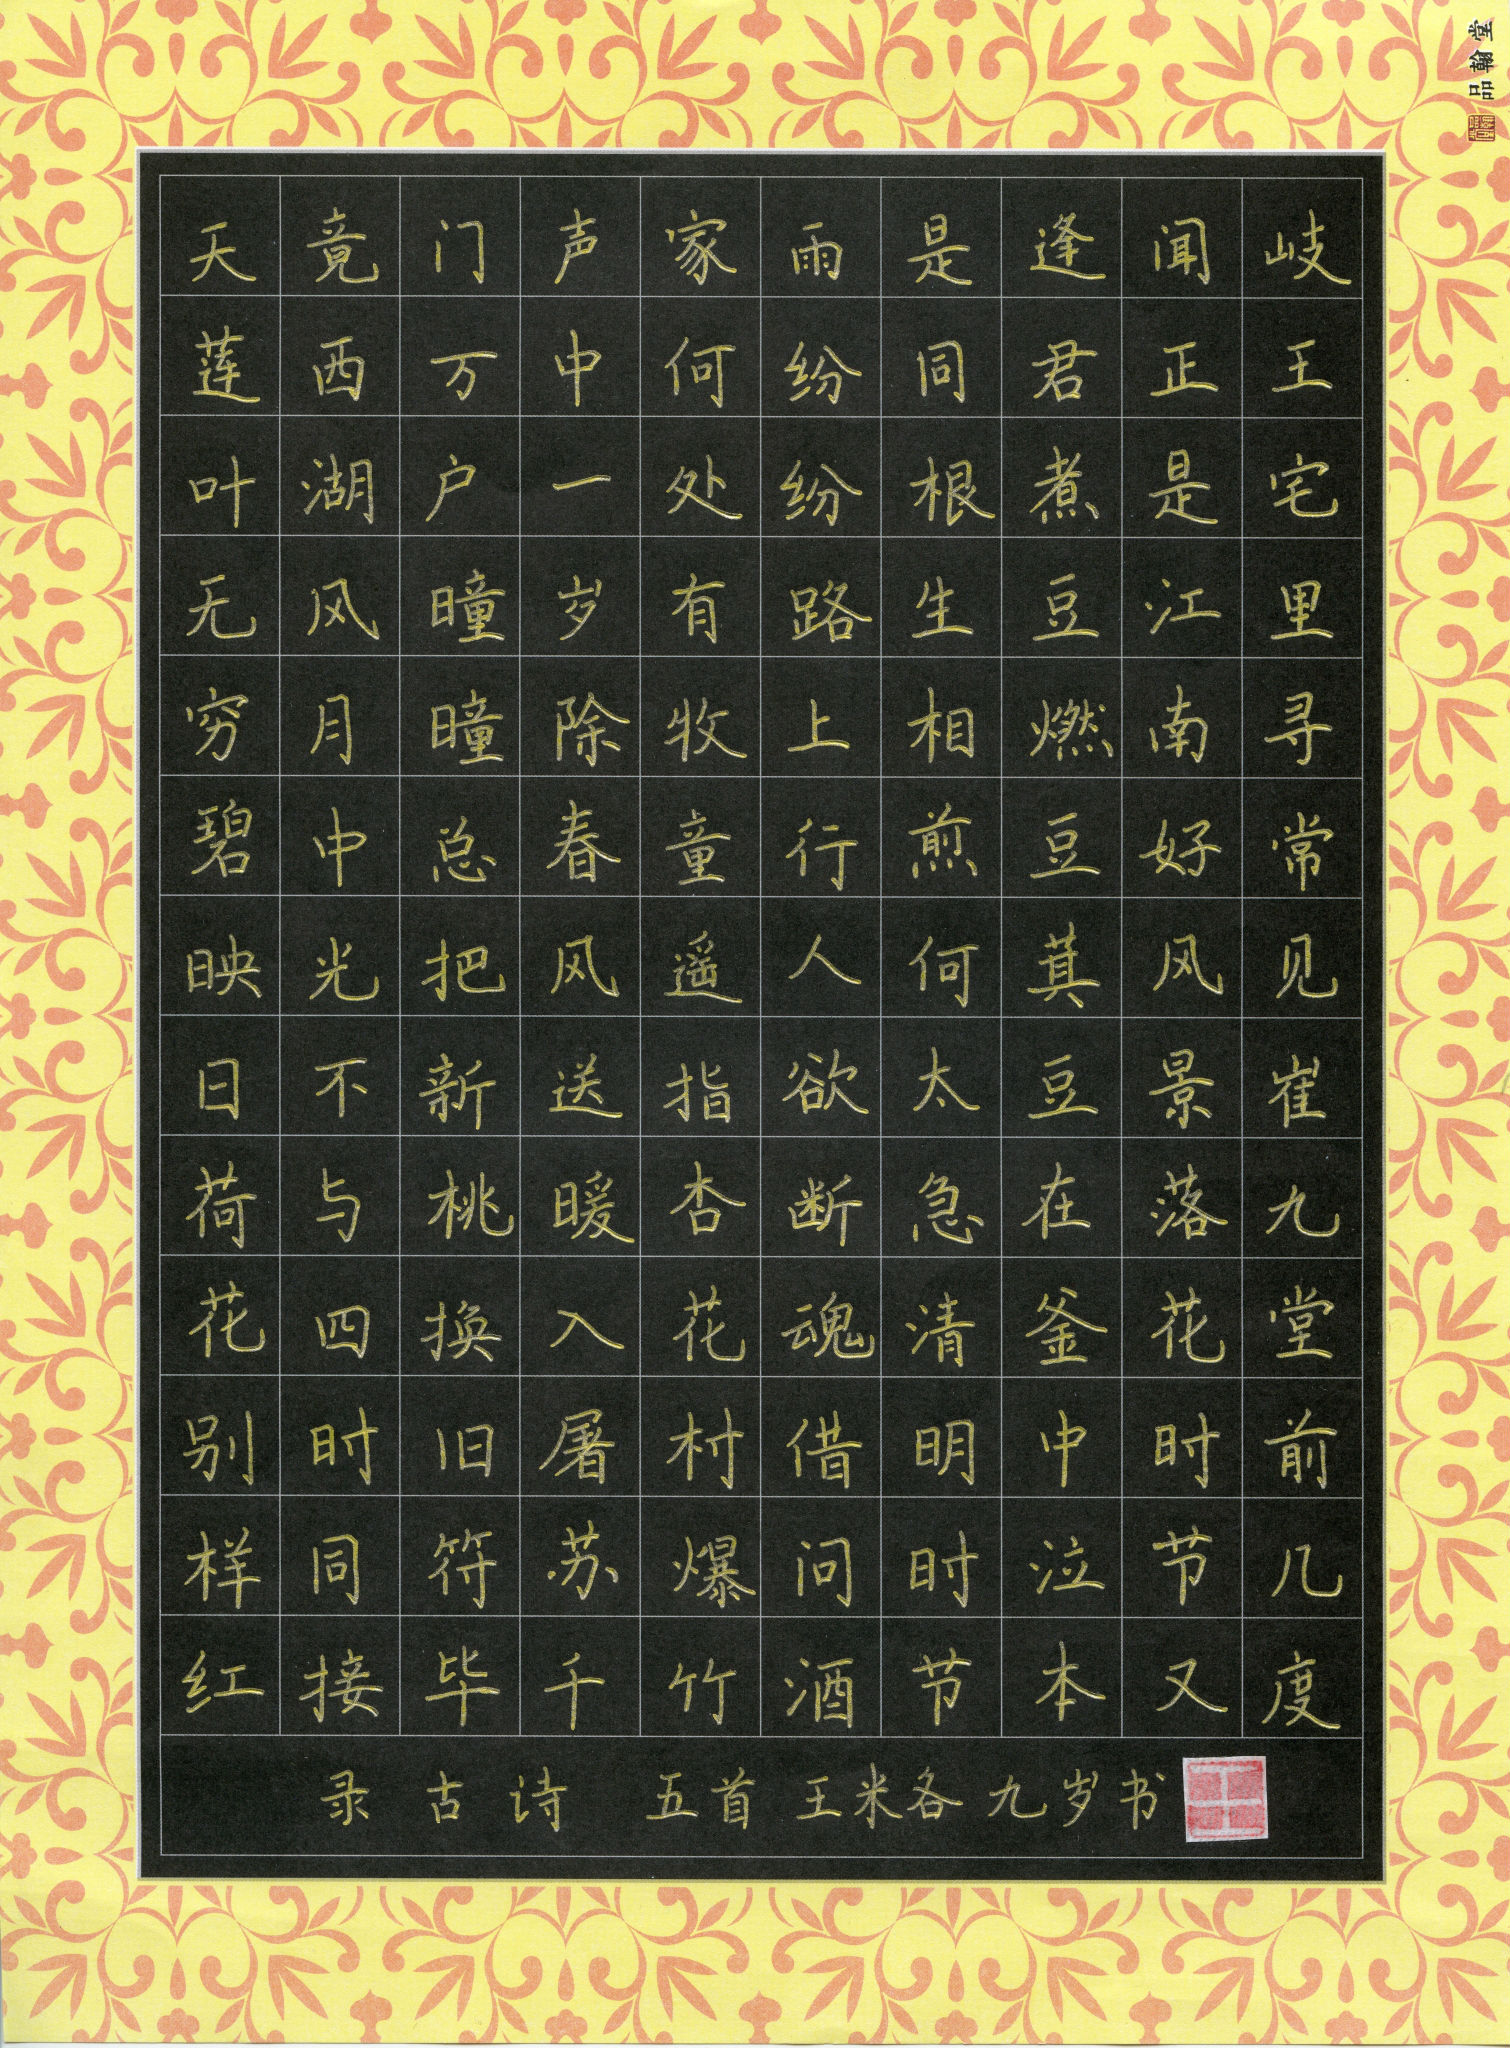 岐王宅里寻常见崔九堂前几度
闻正是江南好风景落花时节又
逢君煮豆燃豆萁豆在釜中泣本
是同根生相煎何太急清明时节
雨纷纷路上行人欲断魂借问酒
家何处有牧童遥指杏花村爆竹
声中一岁除春风送暖入屠苏千
门万户曈曈总把新桃换旧符毕
竟西湖风月中光不与四时同接
天莲叶无穷碧映日荷花别样红
录古诗 五首 王米各九岁书
王
品翰堂